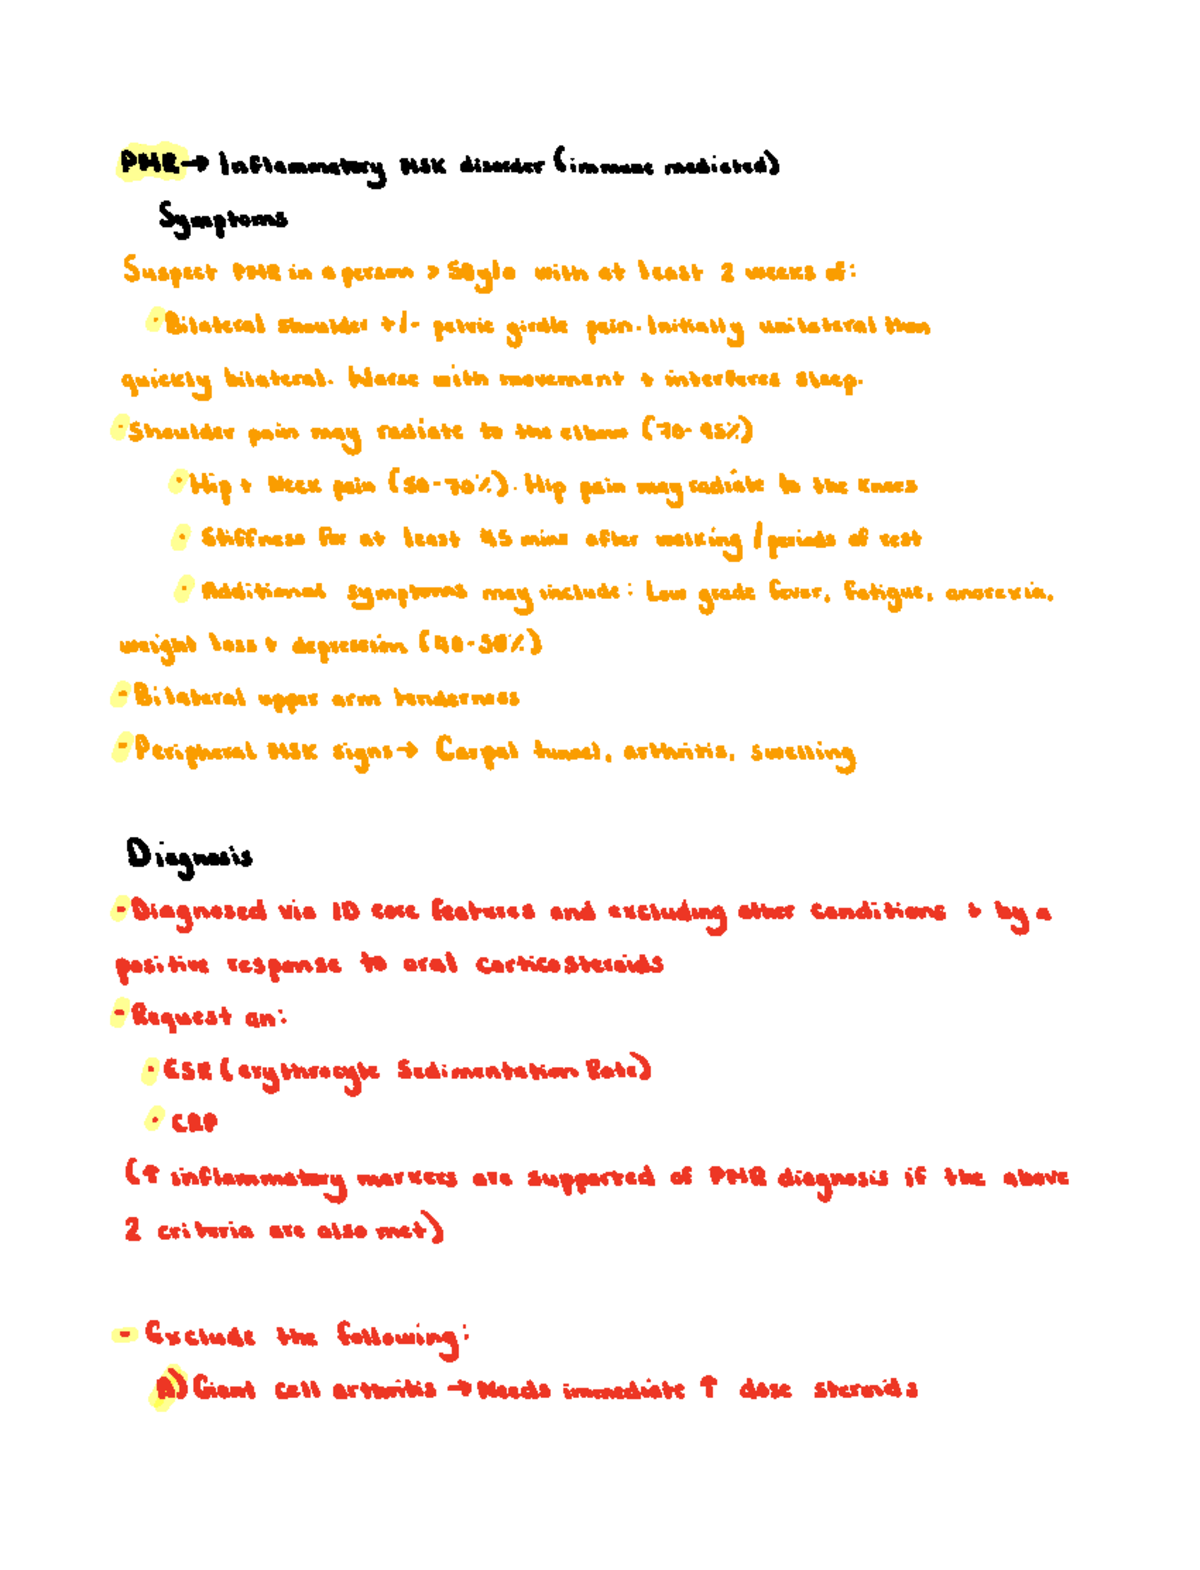 PMR → Inflammatory MSK disorder (immune mediated)
Symptoms
Suspect PMR in a person > 50y/o with at least 2 weeks of:
• Bilateral shoulder +/- pelvic girdle pain. Initially unilateral then
quickly bilateral. Worse with movement + interferes sleep.
· Shoulder pain may radiate to the elbow (70-95%)
• Hip + Neck pain (50-70%). Hip pain may radiate to the knees
• Stiffness for at least 45 mins after walking / periods of rest
• Additional symptoms may include: Low grade fever, fatigue, anorexia,
weight loss + depression (40-50%)
- Bilateral upper arm tenderness
- Peripheral MSK signs → Carpal tunnel, arthritis, swelling
Diagnosis
- Diagnosed via ID core features and excluding other conditions + by a
positive response to oral corticosteroids
- Request an:
• ESR (erythrocyte Sedimentation Rate)
• CRP
(↑ inflammatory markers are supported of PMR diagnosis if the above
2 criteria are also met)
- Exclude the following:
A) Giant cell arthritis → Needs immediate ↑ dose steroids